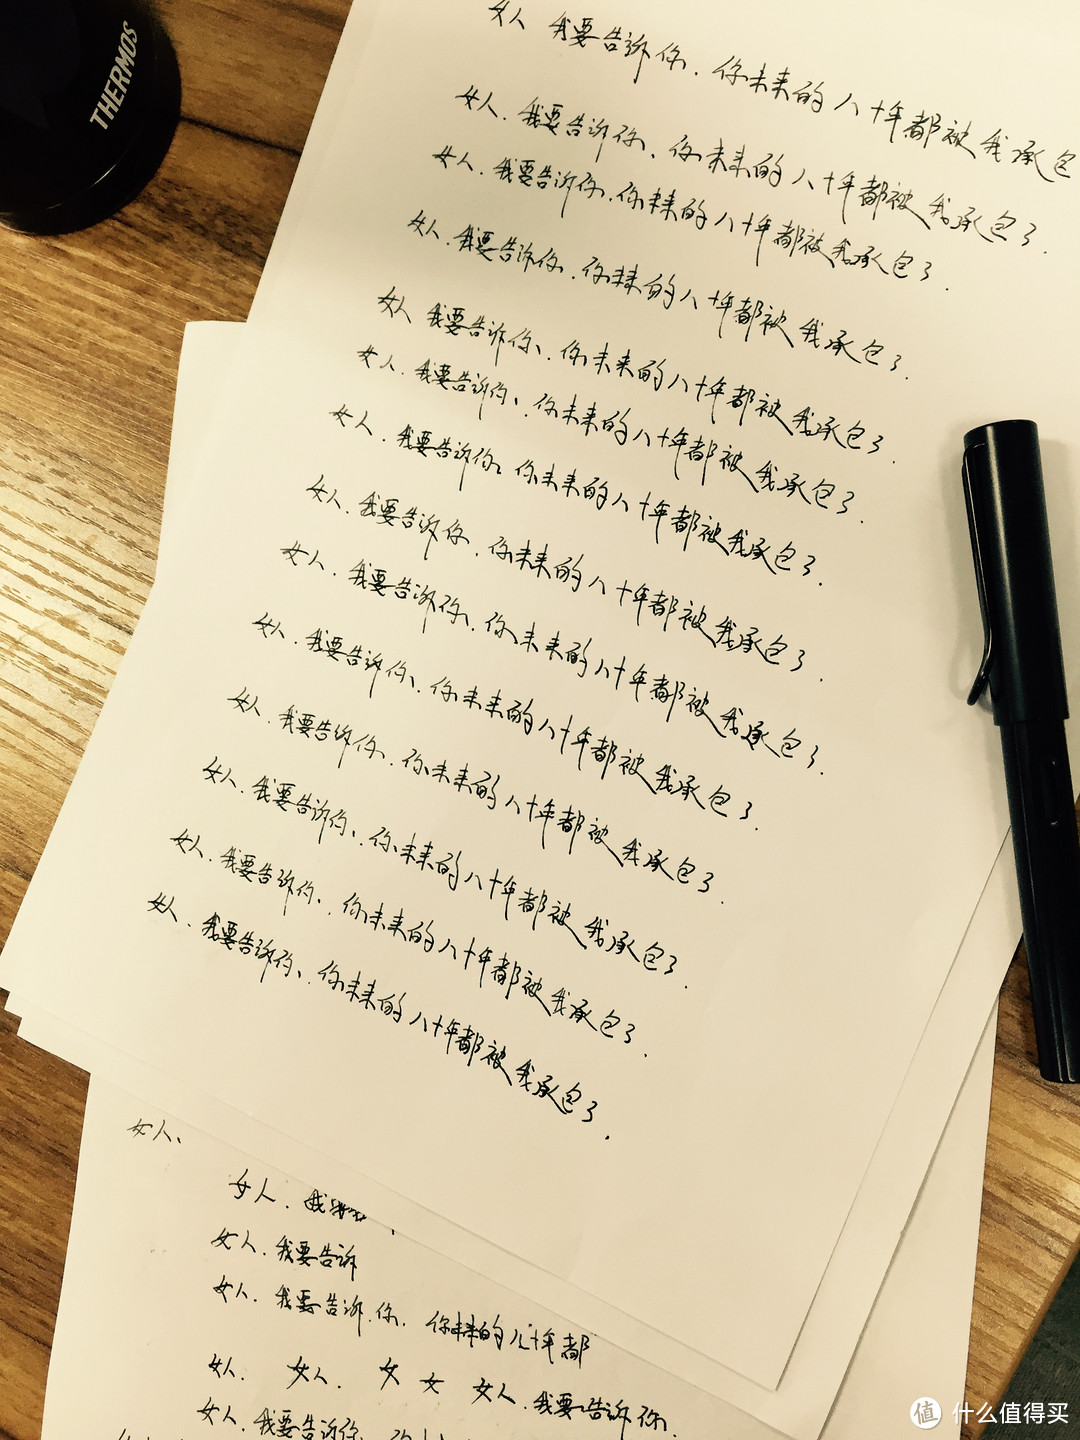 THERMOS
女人 我要告诉你，你未来的八十年都被我承包
女人，我要告诉你，你未来的八十年都被我承包了.
女人，我要告诉你，你未来的八十年都被我承包了.
女人，我要告诉你，你未来的八十年都被我承包了.
女人 我要告诉你，你未来的八十年都被我承包了.
女人，我要告诉你，你未来的八十年都被我承包了.
女人，我要告诉你，你未来的八十年都被我承包了.
女人，我要告诉你，你未来的八十年都被我承包了.
女人，我要告诉你，你未来的八十年都被我承包了.
女人，我要告诉你，你未来的八十年都被我承包了.
女人，我要告诉你，你未来的八十年都被我承包了.
女人，我要告诉你，你未来的八十年都被我承包了.
女人，我要告诉你，你未来的八十年都被我承包了.
女人，我要告诉你，你未来的八十年都被我承包了.
女人、
女人，我
女人，我要告诉
女人，我要告诉你，你未来的八十年都
女人， 女人， 女 女 女人，我要告诉你
女人，我要告诉你，你
值 什么值得买